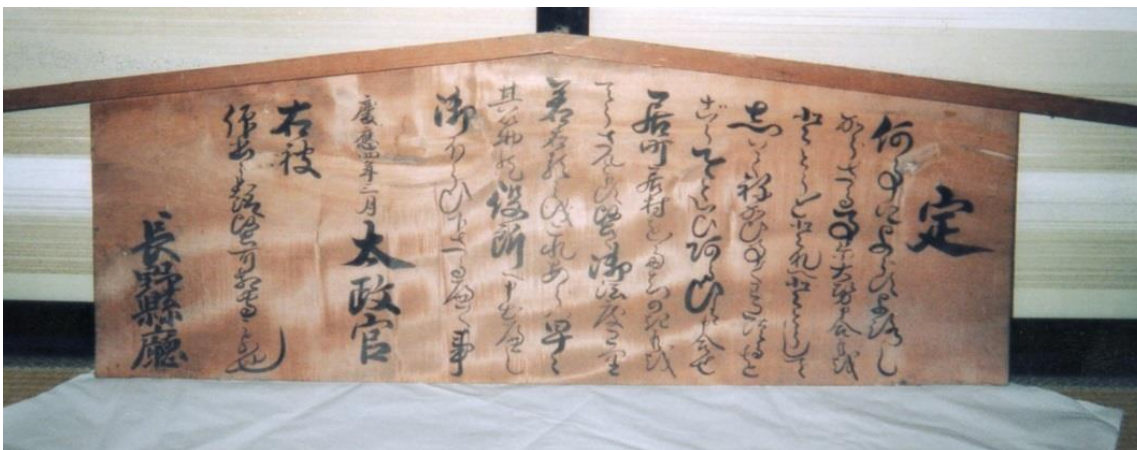 定
何事によらすよろし
からさる事に大勢申合候を
ととうととなへととうして
志いてねかひ事くわたつるを
こうそといひあるひハ申合せ
居町居村を立のき候を
てうさんと申堅く御法度たり
若右類之儀これあらハ早々
其筋の役所へ申出へし
御ほうひ下さるへく事
慶應四年三月 太政官
右被
仰出候趣堅可相守もの也
長野縣廳